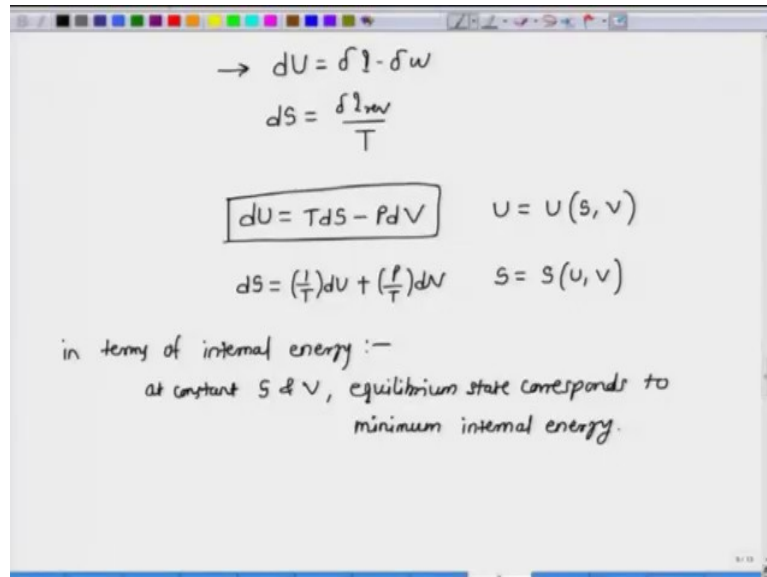 → dU = δq - δw
dS = δq_rev / T
dU = TdS - PdV U = U(S, V)
dS = (1/T)dU + (P/T)dV S = S(U, V)
in terms of internal energy :-
at constant S & V, equilibrium state corresponds to
minimum internal energy.